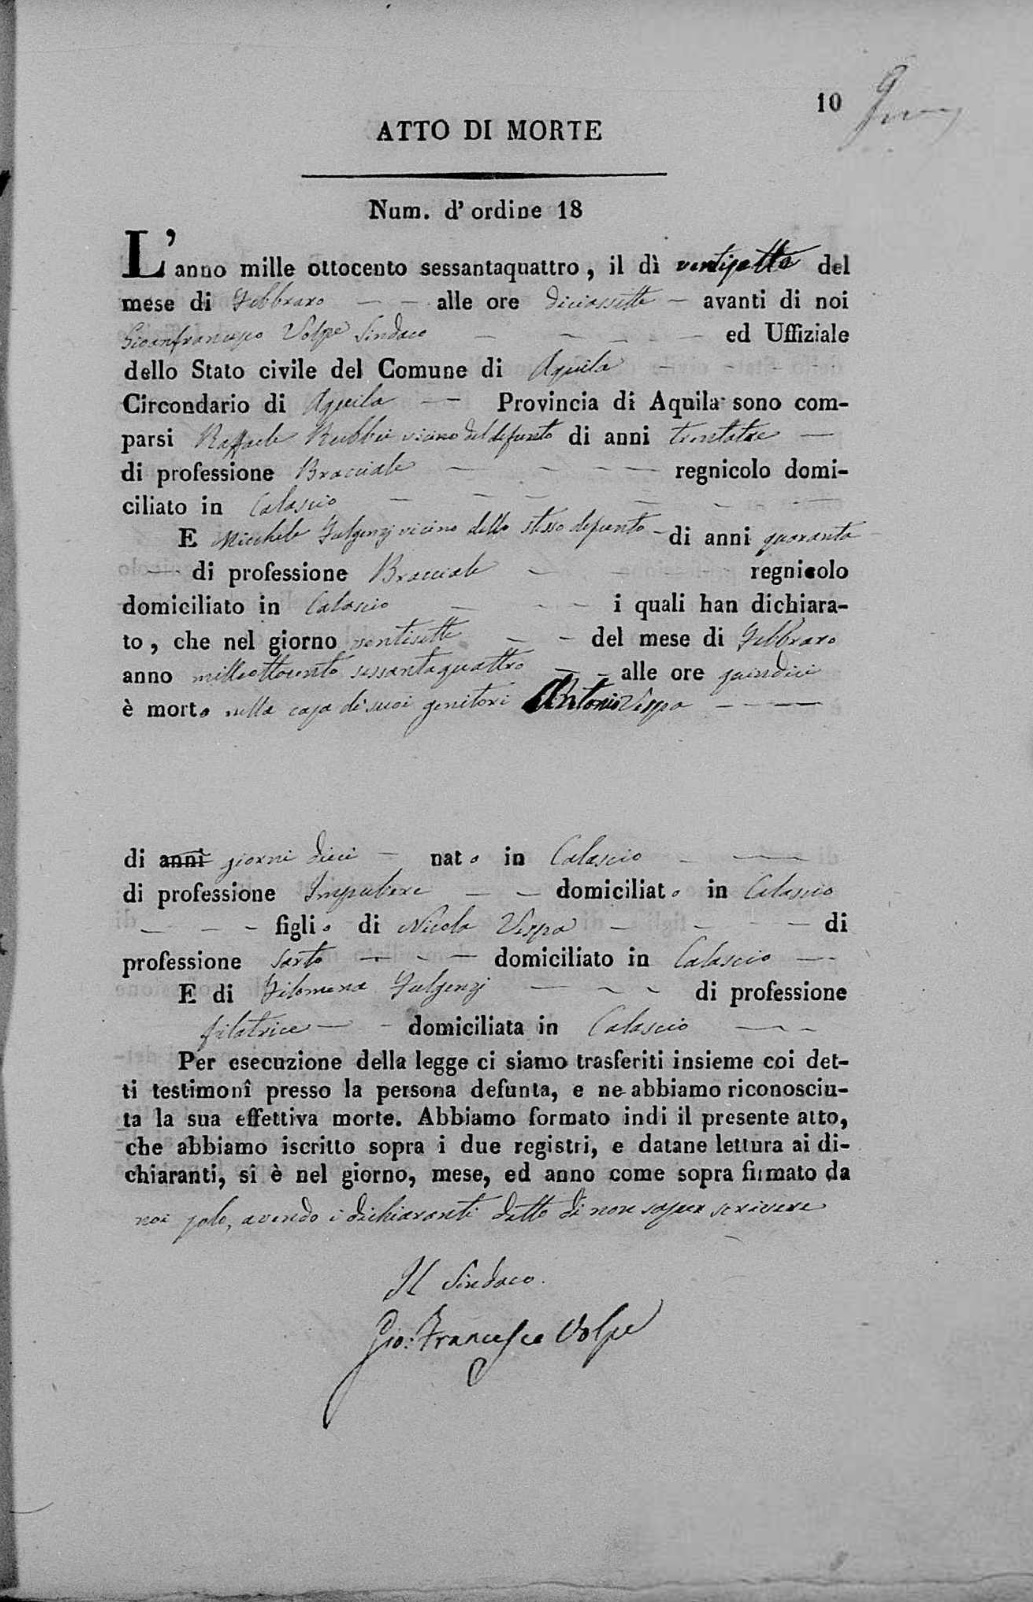 10
ATTO DI MORTE
Num. d' ordine 18
L'anno mille ottocento sessantaquattro, il dì ventisette del
mese di Febbraro — — alle ore diciassette — avanti di noi
Gianfrancesco Volpe Sindaco — — — — ed Uffiziale
dello Stato civile del Comune di Aquila —
Circondario di Aquila — — Provincia di Aquila sono com-
parsi Raffaele vicino del defunto di anni trentatre —
di professione Bracciale — — — — regnicolo domi-
ciliato in Calascio — — — —
E Michele Fulgenzj vicino dello stesso defunto — di anni quaranta
— di professione Bracciale — — — regnicolo
domiciliato in Calascio — — — i quali han dichiara-
to, che nel giorno ventisette — — del mese di Febbraro
anno milleottocento sessantaquattro — — alle ore quindici
è morto nella casa di suoi genitori Antonio Vespa — — —
di anni giorni dieci — nato in Calascio — —
di professione Impubere — — domiciliato in Calascio
— — — figlio di Nicola Vespa — — — di
professione Sarto — — — domiciliato in Calascio —
E di Filomena Fulgenzj — — — di professione
filatrice — — domiciliata in Calascio — —
Per esecuzione della legge ci siamo trasferiti insieme coi det-
ti testimonî presso la persona defunta, e ne abbiamo riconosciu-
ta la sua effettiva morte. Abbiamo formato indi il presente atto,
che abbiamo iscritto sopra i due registri, e datane lettura ai di-
chiaranti, si è nel giorno, mese, ed anno come sopra firmato da
noi solo, avendo i dichiaranti detto di non saper scrivere
Il Sindaco.
Gio: Francesco Volpe